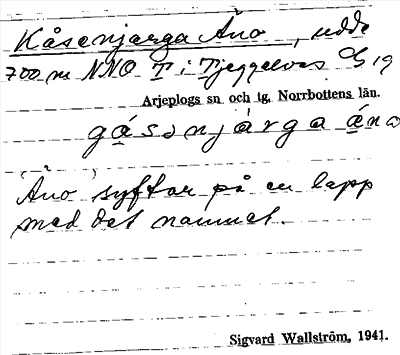 Kåsenjarga Ăno, udde
700 m NNO T i Tjeggelvas G 19
Arjeplogs sn och tg, Norrbottens län.
gásənjárga ánɒ
Ăno syftar på en lapp
med det namnet.
Sigvard Wallström, 1941.